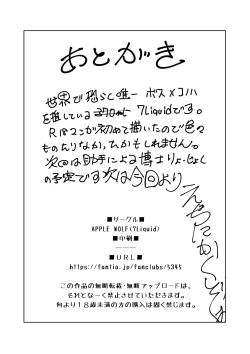 あとがき
世界で恐らく唯一 ボス×コハ
を推している 7Liquidです。
R18マンガ初めて描いたので色々
ものたりなか、たかもしれません。
次回は助手による博士
の予定です次は今回より
えちにかくぞ
■サークル■
APPLE WOLF(7Liquid)
■印刷■
————
■URL■
https://fantia.jp/fanclubs/5345
この作品の無断転載・無断アップロードは、
それとなーく禁止させていただきます。
何より18歳未満の方の購入は固く禁じます。